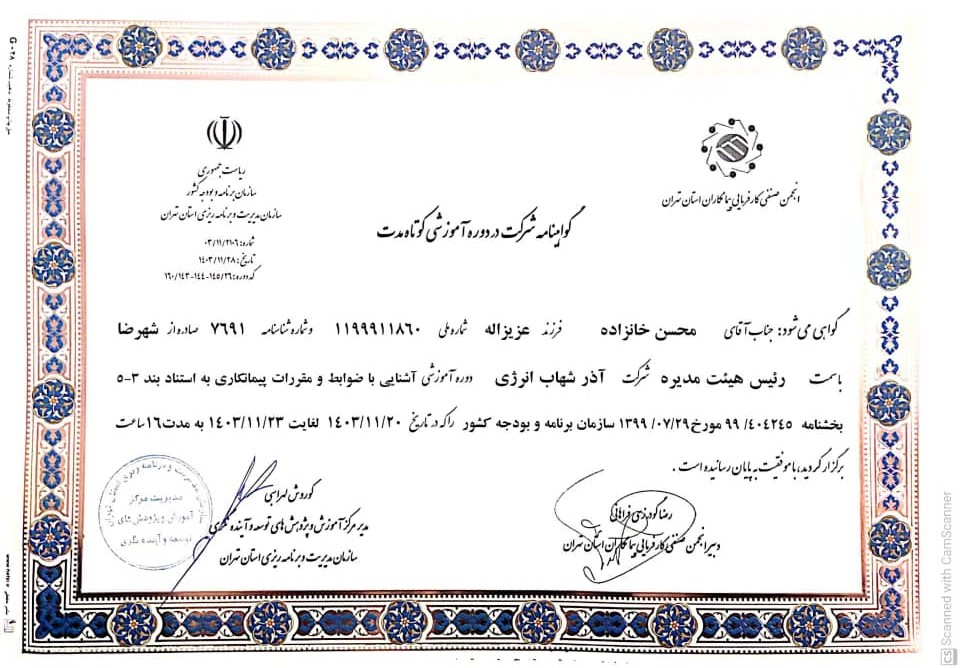 ریاست جمهوری
سازمان برنامه و بودجه کشور
سازمان مدیریت و برنامه ریزی استان تهران
شماره: ۰۳/۱۱/۲۱۰۶
تاریخ: ۱۴۰۳/۱۱/۲۸
کد دوره: ۱۶۰/۱۴۳-۱۴۴-۱۴۵/۳۶
انجمن صنفی کارفرمایی پیمانکاران استان تهران
گواهینامه شرکت در دوره آموزشی کوتاه مدت
گواهی می شود: جناب آقای محسن خانزاده فرزند عزیزاله شماره ملی ۱۱۹۹۹۱۱۸۶۰ و شماره شناسنامه ۷۶۹۱ صادره از شهرضا
با سمت رئیس هیئت مدیره شرکت آذر شهاب انرژی دوره آموزشی آشنایی با ضوابط و مقررات پیمانکاری به استناد بند ۳-۵
بخشنامه ۹۹/۴۰۴۲۴۵ مورخ ۱۳۹۹/۰۷/۲۹ سازمان برنامه و بودجه کشور را که در تاریخ ۱۴۰۳/۱۱/۲۰ لغایت ۱۴۰۳/۱۱/۲۳ به مدت ۱۶ ساعت
برگزار گردید، با موفقیت به پایان رسانیده است.
رضا گودرزی فراهانی
دبیر انجمن صنفی کارفرمایی پیمانکاران استان تهران
کوروش لهراسبی
مدیر مرکز آموزش و پژوهش های توسعه و آینده نگری
سازمان مدیریت و برنامه ریزی استان تهران
سازمان مدیریت و برنامه ریزی استان تهران
مدیریت مرکز
آموزش و پژوهش های
توسعه و آینده نگری
CS Scanned with CamScanner